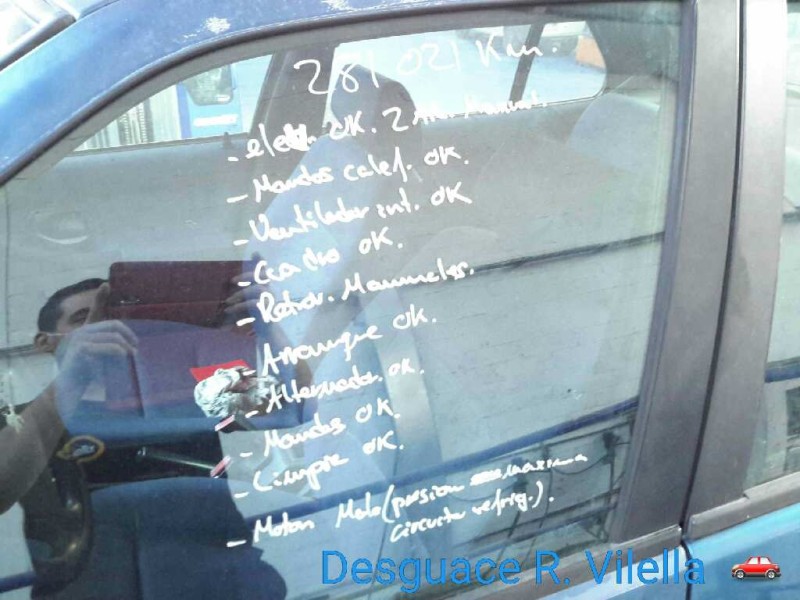 281 021 Km.
- elev. OK. 2 Manuales
- Mandos calef. OK.
- Ventilador int. OK
- Cuadro OK.
- Retrov. Manuales.
- Arranque OK.
- Alternador. OK.
- Mandos OK.
- Limpia OK.
- Motor Malo (presion maxima
circuito refrig.).
Desguace R. Vilella